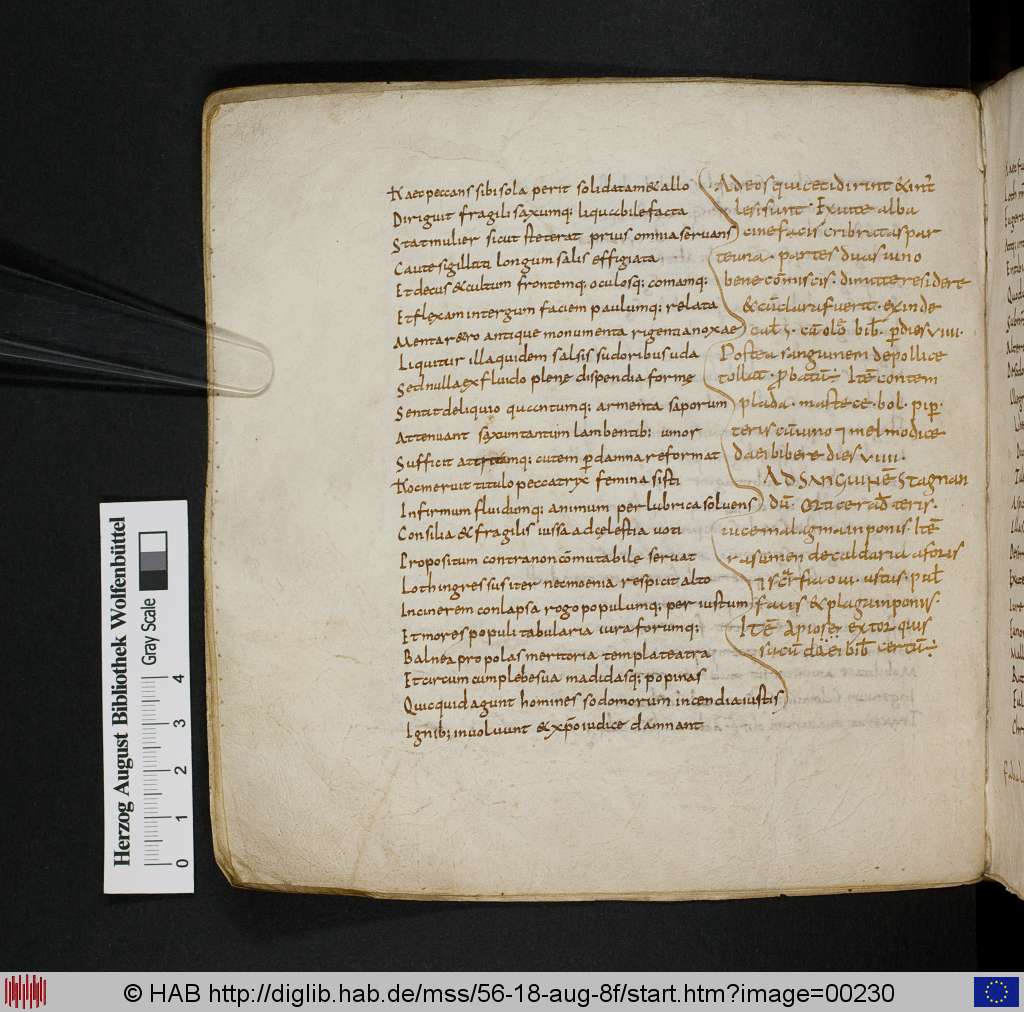 Haec peccans sibi sola perit solidata metallo
Diriguit fragili saxumq; liquabile facta
Stat mulier sicut steterat prius omnia servans
Caute sigillati longum salis effigiata
Et decus & cultum frontemq; oculosq; comamq;
Et flexam in tergum faciem paulumq; relata
Menta retro antique monumenta rigentia noxae
Liquitur illa quidem salsis sudoribus uda
Sed nulla ex fluido plene dispendia forme
Sentit deliquio quantumq; armenta saporum
Attenuant saxum tantum lambentib; umor
Sufficit attritamq; cutem p damna reformat
Hoc meruit titulo peccatryx femina sisti
Infirmum fluidumq; animum per lubrica solvens
Consilia & fragilis iussa ad celestia voti
Propositum contra non comutabile servat
Loth ingressus iter nec moenia respicit alto
In cinerem conlapsa rogo populumq; per iustum
Et mores populi tabularia iura forumq;
Balnea propolas meritoria templa teatra
Et circum cum plebe sua madidasq; popinas
Quicquid agunt homines sodomorum incendia iustis
Ignib; involvunt & xpo iudice damnant
Ad eos qui ceciderint & int
lesi sunt · Exvite alba
cine facis cribratas par
te una · partes duas vino
bene commiscis · dimitte residere
& cum clarus fuerit · exinde
bib p dies VIIII ·
Postea sanguinem de pollice
tollat · pbatum Item contem
plada · mastece · bol · pip ·
teris cum vino 7 mel modice
da ei bibere dies VIIII ·
AD SANGUINEM Stagnan
dum · teris ·
inponis Item
rasamen de caldaria
ovi · ustus · pul
facis & plaga inponis ·
Item Apiose extorquis
sucum da ei bib certum
Herzog August Bibliothek Wolfenbüttel
Gray Scale
0 1 2 3 4
© HAB http://diglib.hab.de/mss/56-18-aug-8f/start.htm?image=00230